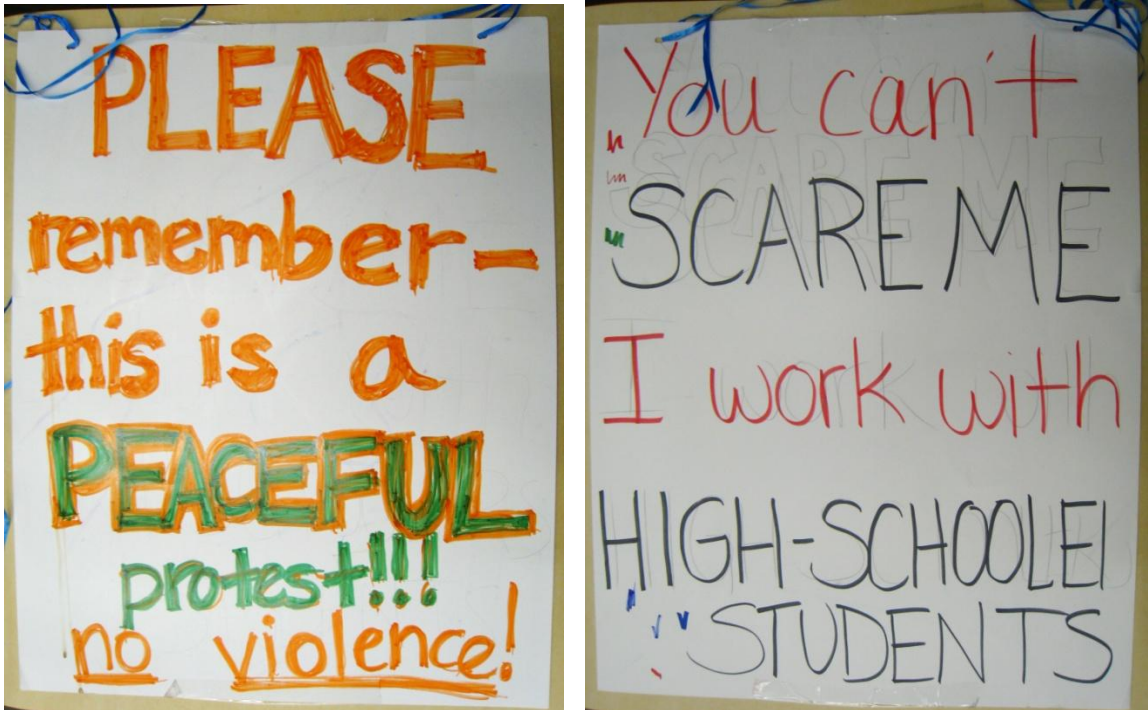 PLEASE
remember-
this is a
PEACEFUL
protest!!!
no violence!
You can't
SCARE ME
I work with
HIGH-SCHOOLEI
STUDENTS